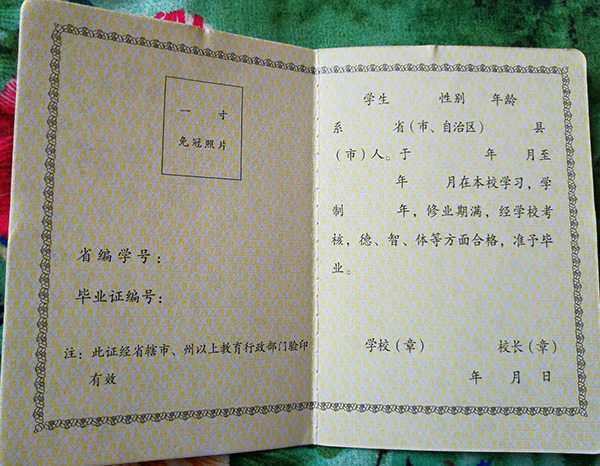 一 寸
免冠照片
省编学号：
毕业证编号：
注：此证经省辖市、州以上教育行政部门验印
有效
学生 性别 年龄
系 省（市、自治区） 县
（市）人。于 年 月至
年 月在本校学习，学
制 年，修业期满，经学校考
核，德、智、体等方面合格，准予毕
业。
学校（章） 校长（章）
年 月 日